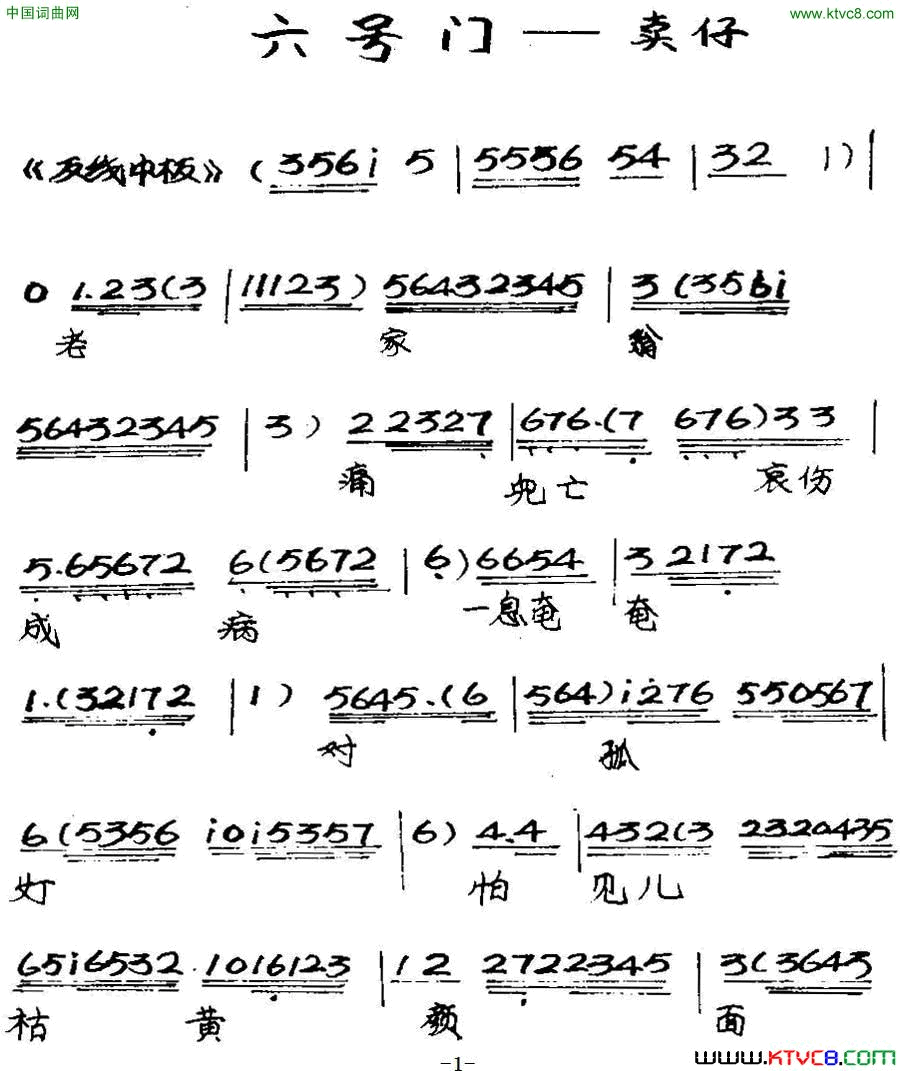 中国词曲网
www.ktvc8.com
六号门——卖仔
《反线中板》(356i 5 | 5556 54 | 32 1) |
0 1.23(3 | 11123) 56432345 | 3 (356i
老 家 翁
56432345 | 3) 2 2327 | 676.(7 676)33 |
痛 儿亡 哀伤
5.65672 6(5672 | 6)6654 | 3 2172
成 病 一息奄 奄
1.(32172 | 1) 5645.(6 | 564)i276 550567 |
对 孤
6(5356 i0i5357 | 6) 4.4 | 432(3 2320435
灯 怕 见儿
65i6532 1016123 | 12 2722345 | 3(3643
枯 黄 颜 面
-1-
www.KTVC8.com